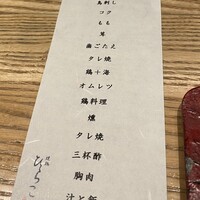 鳥刺し
コク
もも
葱
歯ごたえ
タレ焼
鶏十海
オムレツ
鶏料理
燻
タレ焼
三杯酢
胸肉
汁と飯
ひらこ